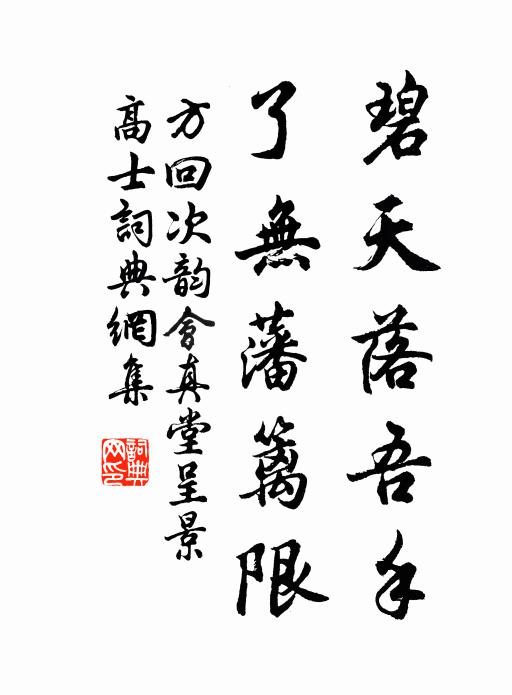 碧天落吾手
了無藩籬限
方回次韵會真堂呈景
高士詞典網集
詞典网印